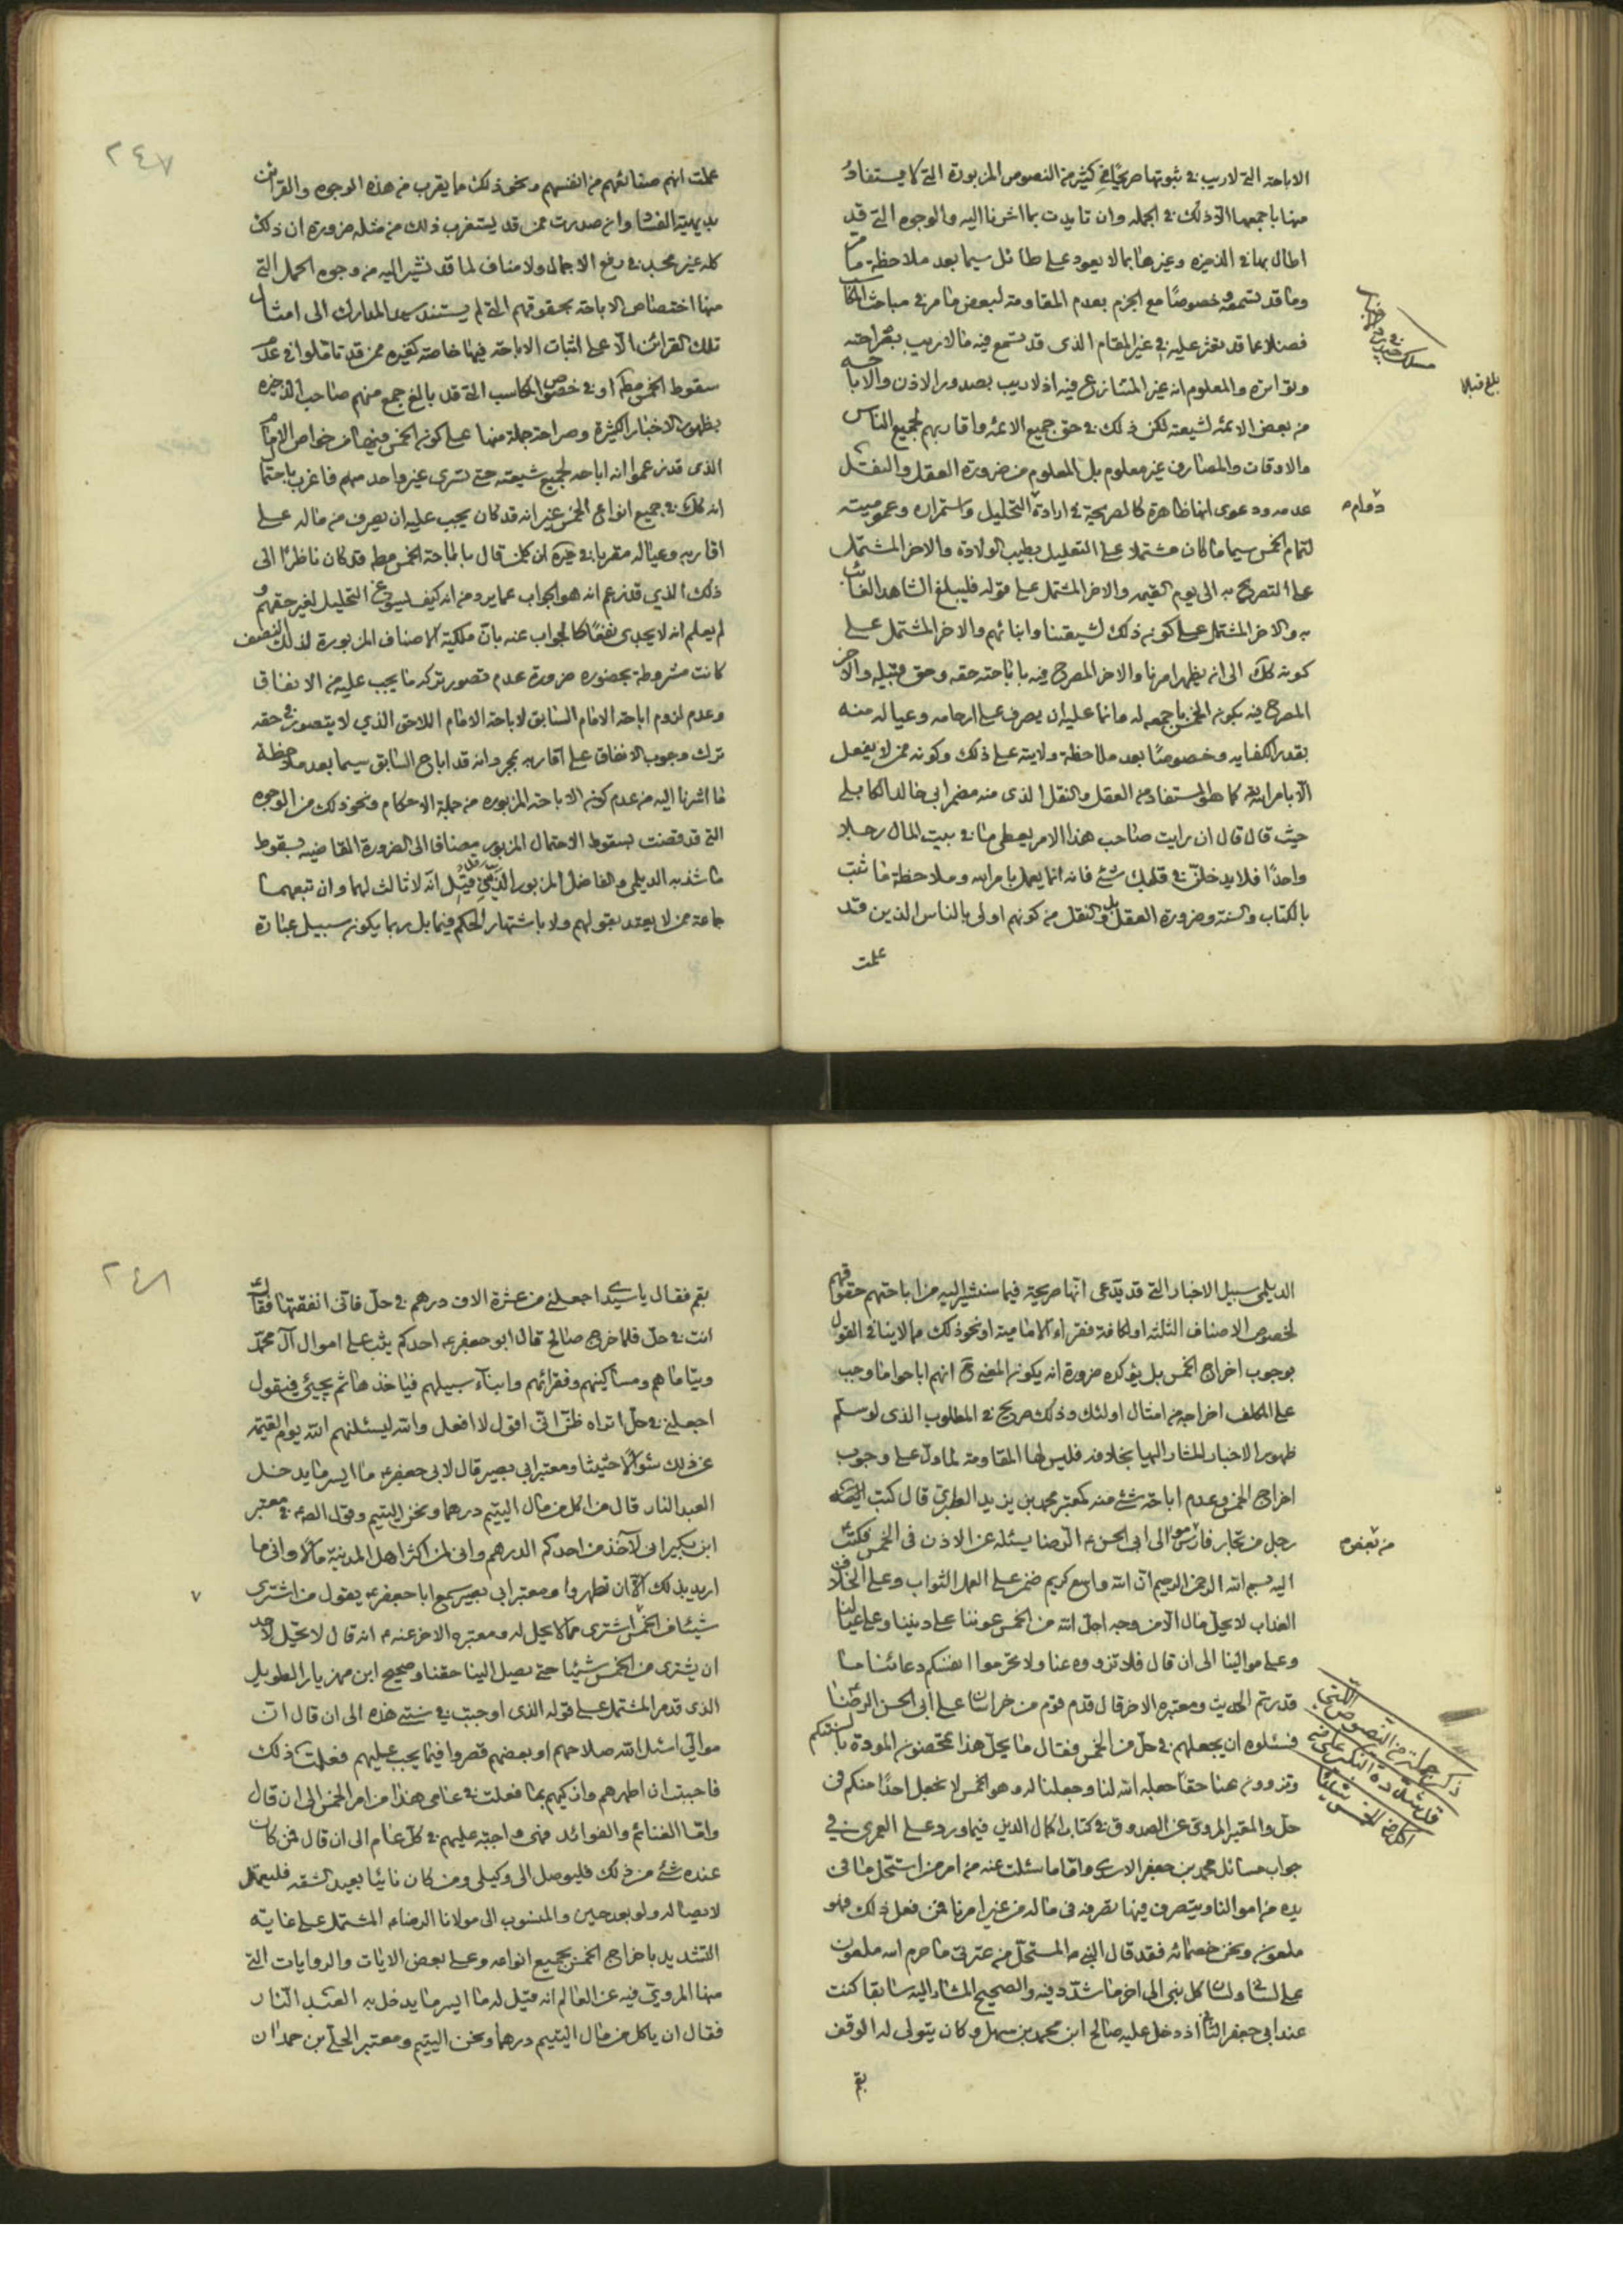 الاباحة التى لاريب فى ثبوتها صريحًا فى كثير من النصوص المزبورة التى لا يستفاد
منها باجمعها الا ذلك فى الجمله وان تايدت بما اشرنا اليه والوجوه التى قد
اطال بها فى الذخيره وغيرها بما لا يعود على طائل سيما بعد ملاحظة ما مر
وما قد تسمعه وخصوصًا مع الجزم بعدم المقاومة لبعض ما مر فى مباحث
فضلا عما قد تعثر عليه فى غير المقام الذى قد تسمع فيه ما لا ريب بصراحته
وتواتره والمعلوم انه غير المتنازع فيه اذ لا ريب بصدور الاذن والاباحه
من بعض الائمه لشيعته لكن ذلك فى حق جميع الائمه واقاربهم لجميع الناس
والاوقات والمصارف غير معلوم بل المعلوم من ضرورة العقل والنقل
عدمه ودعوى انها ظاهرة كالصريحة فى ارادة التحليل واستمراره وعموميته
لتمام الخمس سيما ما كان مشتملا على التعليل بطيب الولادة والاخر المشتمل
على التصريح به الى يوم القيمه والاخر المشتمل على قوله فليبلغ الشاهد الغائب
به والاخر المشتمل على كونه ذلك لشيعتنا وابنائهم والاخر المشتمل على
كونه كلك الى ان يظهر امرنا والاخر المصرح فيه باباحته حقه وحق قبيله والاخر
المصرح فيه بكون الخمس باجمعه له وانما عليه ان يصرف على ارحامه وعياله منه
بقدر الكفايه وخصوصًا بعد ملاحظة ولايته على ذلك وكونه ممن لا يفعل
الا بامر الله كما هو المستفاد من العقل والنقل الذى منه مضمر ابى خالد الكابلى
حيث قال قال ان رايت صاحب هذا الامر يعطى ما فى بيت المال رجلا
واحدًا فلا يدخلن فى قلبك شئ فانه انما يعمل بامر الله وملاحظة ما ثبت
بالكتاب والسنة وضرورة العقل بل والنقل من كونهم اولى بالناس الذين قد
علمت
دوام
علمت انهم صنائعهم من انفسهم ونحو ذلك ما يقرب من هذه الوجوه والقرائن
بديهية الفساد وان صدرت ممن قد يستغرب ذلك من مثله ضرورة ان ذلك
كله غير مجد فى رفع الاجمال ولا مناف لما قد نشير اليه من وجوه الحمل التى
منها اختصاص الاباحة بحقوقهم التى لم يستند سيد المدارك الى امثال
تلك القرائن الا على اثبات الاباحة فيها خاصة كغيره ممن قد تاملوا فى عدم
سقوط الخمس مطم او فى خصوص المكاسب التى قد بالغ جمع منهم صاحب الذخيره
بظهور الاخبار الكثيرة وصراحة جملة منها على كون الخمس فيها من خواص الامام
الذى قد زعموا انه اباحه لجميع شيعته حتى تسرى غير واحد منهم فاغرب
انه كلك فى جميع انواع الخمس غير انه قد كان يجب عليه ان يصرف من ماله على
اقاربه وعياله مقربا فى خيره ان كلمن قال باباحة الخمس مطم قد كان ناظرًا الى
ذلك الذي قد زعم انه هو الجواب عما يرد من انه كيف يسوغ التحليل لغير حقهم و
لم يعلم انه لا يجدى نفعًا كالجواب عنه بان ملكية الاصناف المزبورة لذلك النصف
كانت مشروطة بحضوره ضرورة عدم تصور تركه ما يجب عليه من الانفاق
وعدم لزوم اباحة الامام السابق لاباحة الامام اللاحق الذي لا يتصور فى حقه
ترك وجوب الانفاق على اقاربه بمجرد انه قد اباح السابق سيما بعد ملاحظة
ما اشرنا اليه من عدم كون الاباحة المزبوره من جملة الاحكام ونحو ذلك من الوجوه
التى قد قضت بسقوط الاحتمال المزبور مضافا الى الضرورة القاضيه بسقوط
ما شذ به الديلمى والفاضل المزبور الذى قيل انه لا ثالث لهما وان تبعهما
جماعة ممن لا يعتد بقولهم ولا باشتهار الحكم فيما بل ربما يكون سبيل عبارة
٢٤٧
الديلمى سبيل الاخبار التى قد يدعى انها صريحة فيما سنشير اليه من اباحتهم حقوقهم
لخصوص الاصناف الثلثه او لكافة فقراء الامامية او نحو ذلك مما لا ينافى القول
بوجوب اخراج الخمس بل يؤكده ضرورة انه يكون المعنى ح انهم اباحوا ما وجب
على المكلف اخراجه من امثال اولئك وذلك صريح فى المطلوب الذى لو سلم
ظهور الاخبار المشار اليها بخلافه فليس لها المقاومة لما دل على وجوب
اخراج الخمس وعدم اباحة شئ منه كمعتبر محمد بن يزيد الطبري قال كتب اليه
رجل من تجار فارس من الى ابى الحسن الرضا يسئله عن الاذن فى الخمس فكتب
اليه بسم الله الرحمن الرحيم ان الله واسع كريم ضمن على العمل الثواب وعلى الخلاف
العذاب لا يحل مال الا من وجه احل الله من الخمس عوننا على ديننا وعلى عيالنا
وعلى موالينا الى ان قال فلا تزووه عنا ولا تحرموا انفسكم دعائنا ما
قدرتم الحديث ومعتبره الاخر قال قدم قوم من خراسان على ابى الحسن الرضا
فسئلوه ان يجعلهم فى حل من الخمس فقال ما يحل هذا تمحضون المودة بالسنتكم
وتزوون عنا حقا جعله الله لنا وجعلنا له وهو الخمس لا نجعل احدًا منكم فى
حل والمعتبر المروى عن الصدوق فى كتاب اكمال الدين فيما ورد على العمرى فى
جواب مسائل محمد بن جعفر الاسدى واما ما سئلت عنه من امر من استحل ما فى
يده من اموالنا ويتصرف فيها تصرفه فى ماله من غير امرنا فمن فعل ذلك فهو
ملعون ونحن خصمائه فقد قال النبى ص المستحل من عترتى ما حرم الله ملعون
على لسانى ولسان كل نبى الى اخر ما شدد فيه والصحيح المشار اليه سابقا كنت
عند ابى جعفر الثانى اذ دخل عليه صالح ابن محمد بن سهل وكان يتولى له الوقف
بقم
ذكر جملة من النصوص التى
بقم فقال يا سيدى اجعلنى من عشرة الاف درهم فى حل فانى انفقتها فقال له
انت فى حل فلما خرج صالح قال ابو جعفر ع احدكم يثب على اموال ال محمد
ويتاماهم ومساكينهم وفقرائهم وابناء سبيلهم فياخذها ثم يجيئ فيقول
اجعلنى فى حل اتراه ظن انى اقول لا افعل والله ليسئلنهم الله يوم القيمة
عن ذلك سؤالا حثيثا ومعتبر ابى بصير قال لابى جعفر ع ما ايسر ما يدخل
العبد النار قال من اكل من مال اليتيم درهما ونحن اليتيم وقول الصادق ع فى معتبر
ابن بكير انى لاخذ من احدكم الدرهم وانى لمن اكثر اهل المدينة مالا وانى ما
اريد بذلك الا ان تطهروا ومعتبر ابى بصير سمع ابا جعفر ع يقول من اشترى
شيئا من الخمس اشترى مما لا يحل له ومعتبره الاخر عنه م انه قال لا يحل لاحد
ان يشترى من الخمس شيئا حتى يصل الينا حقنا وصحيح ابن مهزيار الطويل
الذى قد مر المشتمل على قوله الذى اوجبت فى سنتى هذه الى ان قال ان
موالى اسئل الله صلاحهم او بعضهم قصروا فيما يجب عليهم فعلمت ذلك
فاحببت ان اطهرهم وازكيهم بما فعلت فى عامى هذا من امر الخمس الى ان قال
واما الغنائم والفوائد فهى واجبة عليهم فى كل عام الى ان قال فمن كان
عنده شئ من ذلك فليوصل الى وكيلى ومن كان نائيا بعيد الشقه فليعمل
لايصاله ولو بعد حين والمنسوب الى مولانا الرضا ع المشتمل على غاية
التشديد باخراج الخمس بجميع انواعه وعلى بعض الايات والروايات التى
منها المروى فيه عن العالم انه قيل له ما ايسر ما يدخل به العبد النار
فقال ان ياكل من مال اليتيم درهما ونحن اليتيم ومعتبر الحلى بن حمدان
٢٤٨
٧